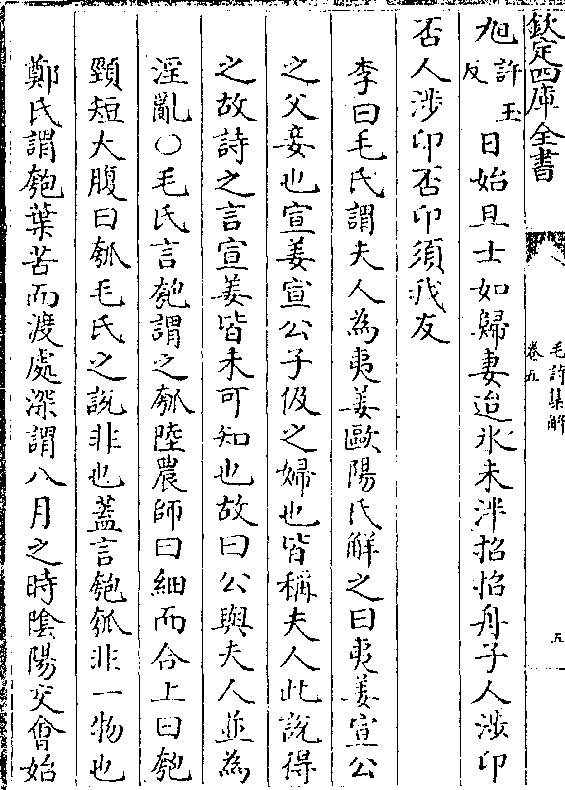 欽定四庫全書
毛詩集解
卷五
五
旭許玉反日始旦士如歸妻迨氷未泮招招舟子人涉卬
否人涉卬否卬須我友
李曰毛氏謂夫人為夷姜歐陽氏解之曰夷姜宣公
之父妾也宣姜宣公子伋之婦也皆稱夫人此說得
之故詩之言宣姜皆未可知也故曰公與夫人並為
淫亂○毛氏言匏謂之瓠陸農師曰細而合上曰匏
頸短大腹曰瓠毛氏之說非也蓋言匏瓠非一物也
鄭氏謂匏葉苦而渡處深謂八月之時隂陽交會始